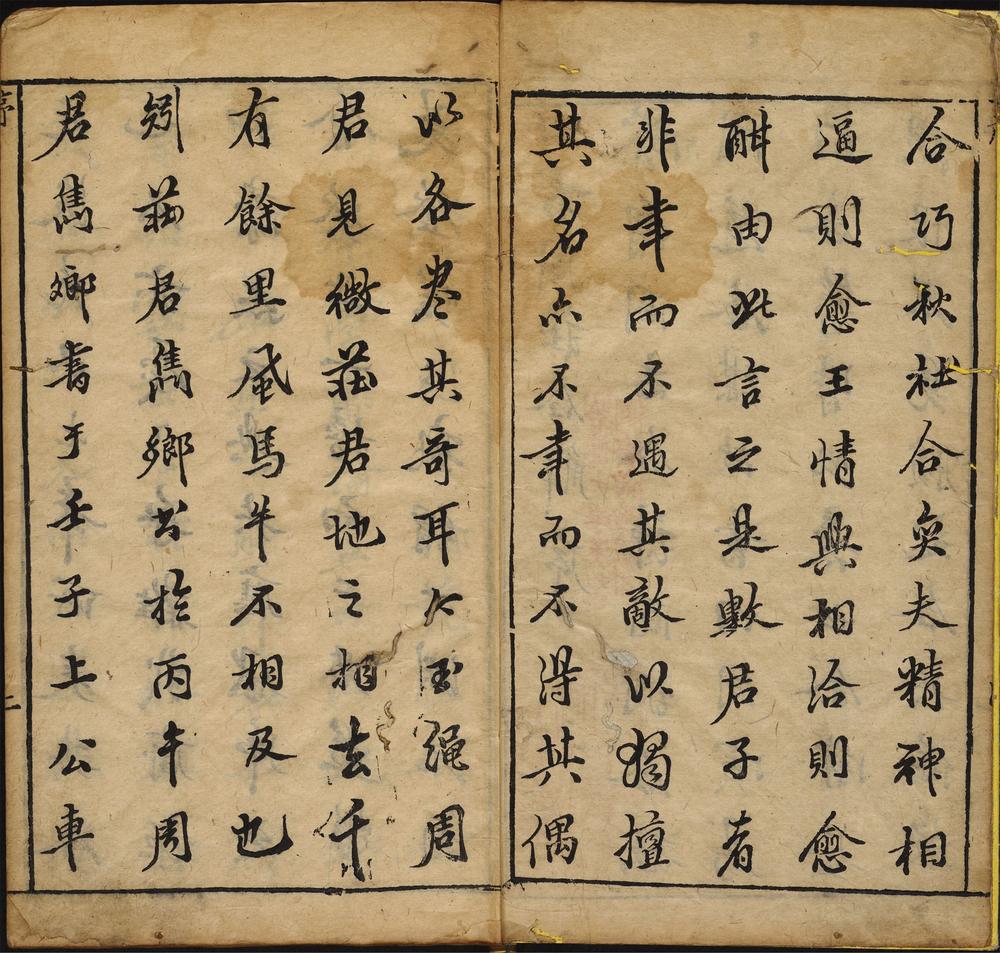 合巧秋社合奕夫精神相
逼則愈王情興相洽則愈
酣由此言之是數君子者
非幸而不遇其敵以獨擅
其名亦不幸而不得其偶
以各盡其奇耳今玉繩周
君見微莊君地之相去千
有餘里風馬牛不相及也
矧莊君雋鄉書於丙午周
君雋鄉書于壬子上公車
序
二